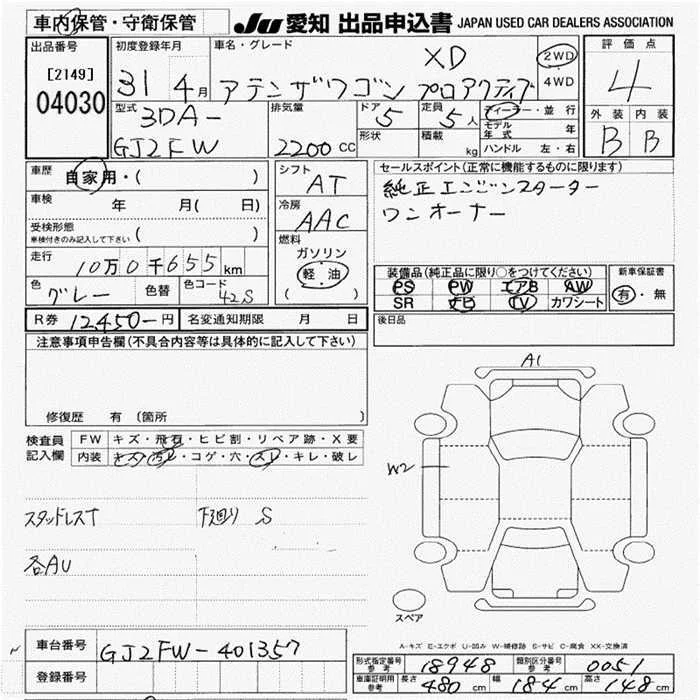 車内保管・守衛保管
JU 愛知 出品申込書 JAPAN USED CAR DEALERS ASSOCIATION
出品番号
[2149]
04030
初度登録年月
31 4月
車名・グレード
XD
アテンザワゴン プロアクティブ
2WD
4WD
評価点
4
型式
3DA-
GJ2FW
排気量
2200 CC
ドア
5
形状
定員
5人
積載
kg
ディーラー・並行
モデル年式 年
ハンドル 左・右
外装 内装
B B
車歴 自家用・( )
車検 年 月( 日)
受検形態
車検付きのみ記入して下さい ( )
走行 10万0千655 km
色 グレー 色替 色コード 42S
シフト
AT
冷房
AAC
燃料
ガソリン
軽・油
( )
セールスポイント(正常に機能するものに限ります)
純正エンジンスターター
ワンオーナー
装備品(純正品に限り○をつけてください)
PS PW エアB AW
SR ナビ TV カワシート
新車保証書
有・無
R券 12450-円 名変通知期限 月 日
後日品
注意事項申告欄(不具合内容等は具体的に記入して下さい)
修復歴 有 〔箇所
検査員記入欄
FW キズ・飛石・ヒビ割・リペア跡・X要
内装 キズ・汚レ・コゲ・穴・スレ・キレ・破レ
スタッドレスT 下廻り S
各AU
A1
W2
スペア
A-キズ E-エクボ U-凹み W-補修跡 S-サビ C-腐食 XX-交換済
車台番号 GJ2FW-401357
登録番号
形式指定番号 参考 18948 類別区分番号 参考 0051
車庫証明用 参考 長さ 480 cm 幅 184 cm 高さ 148 cm